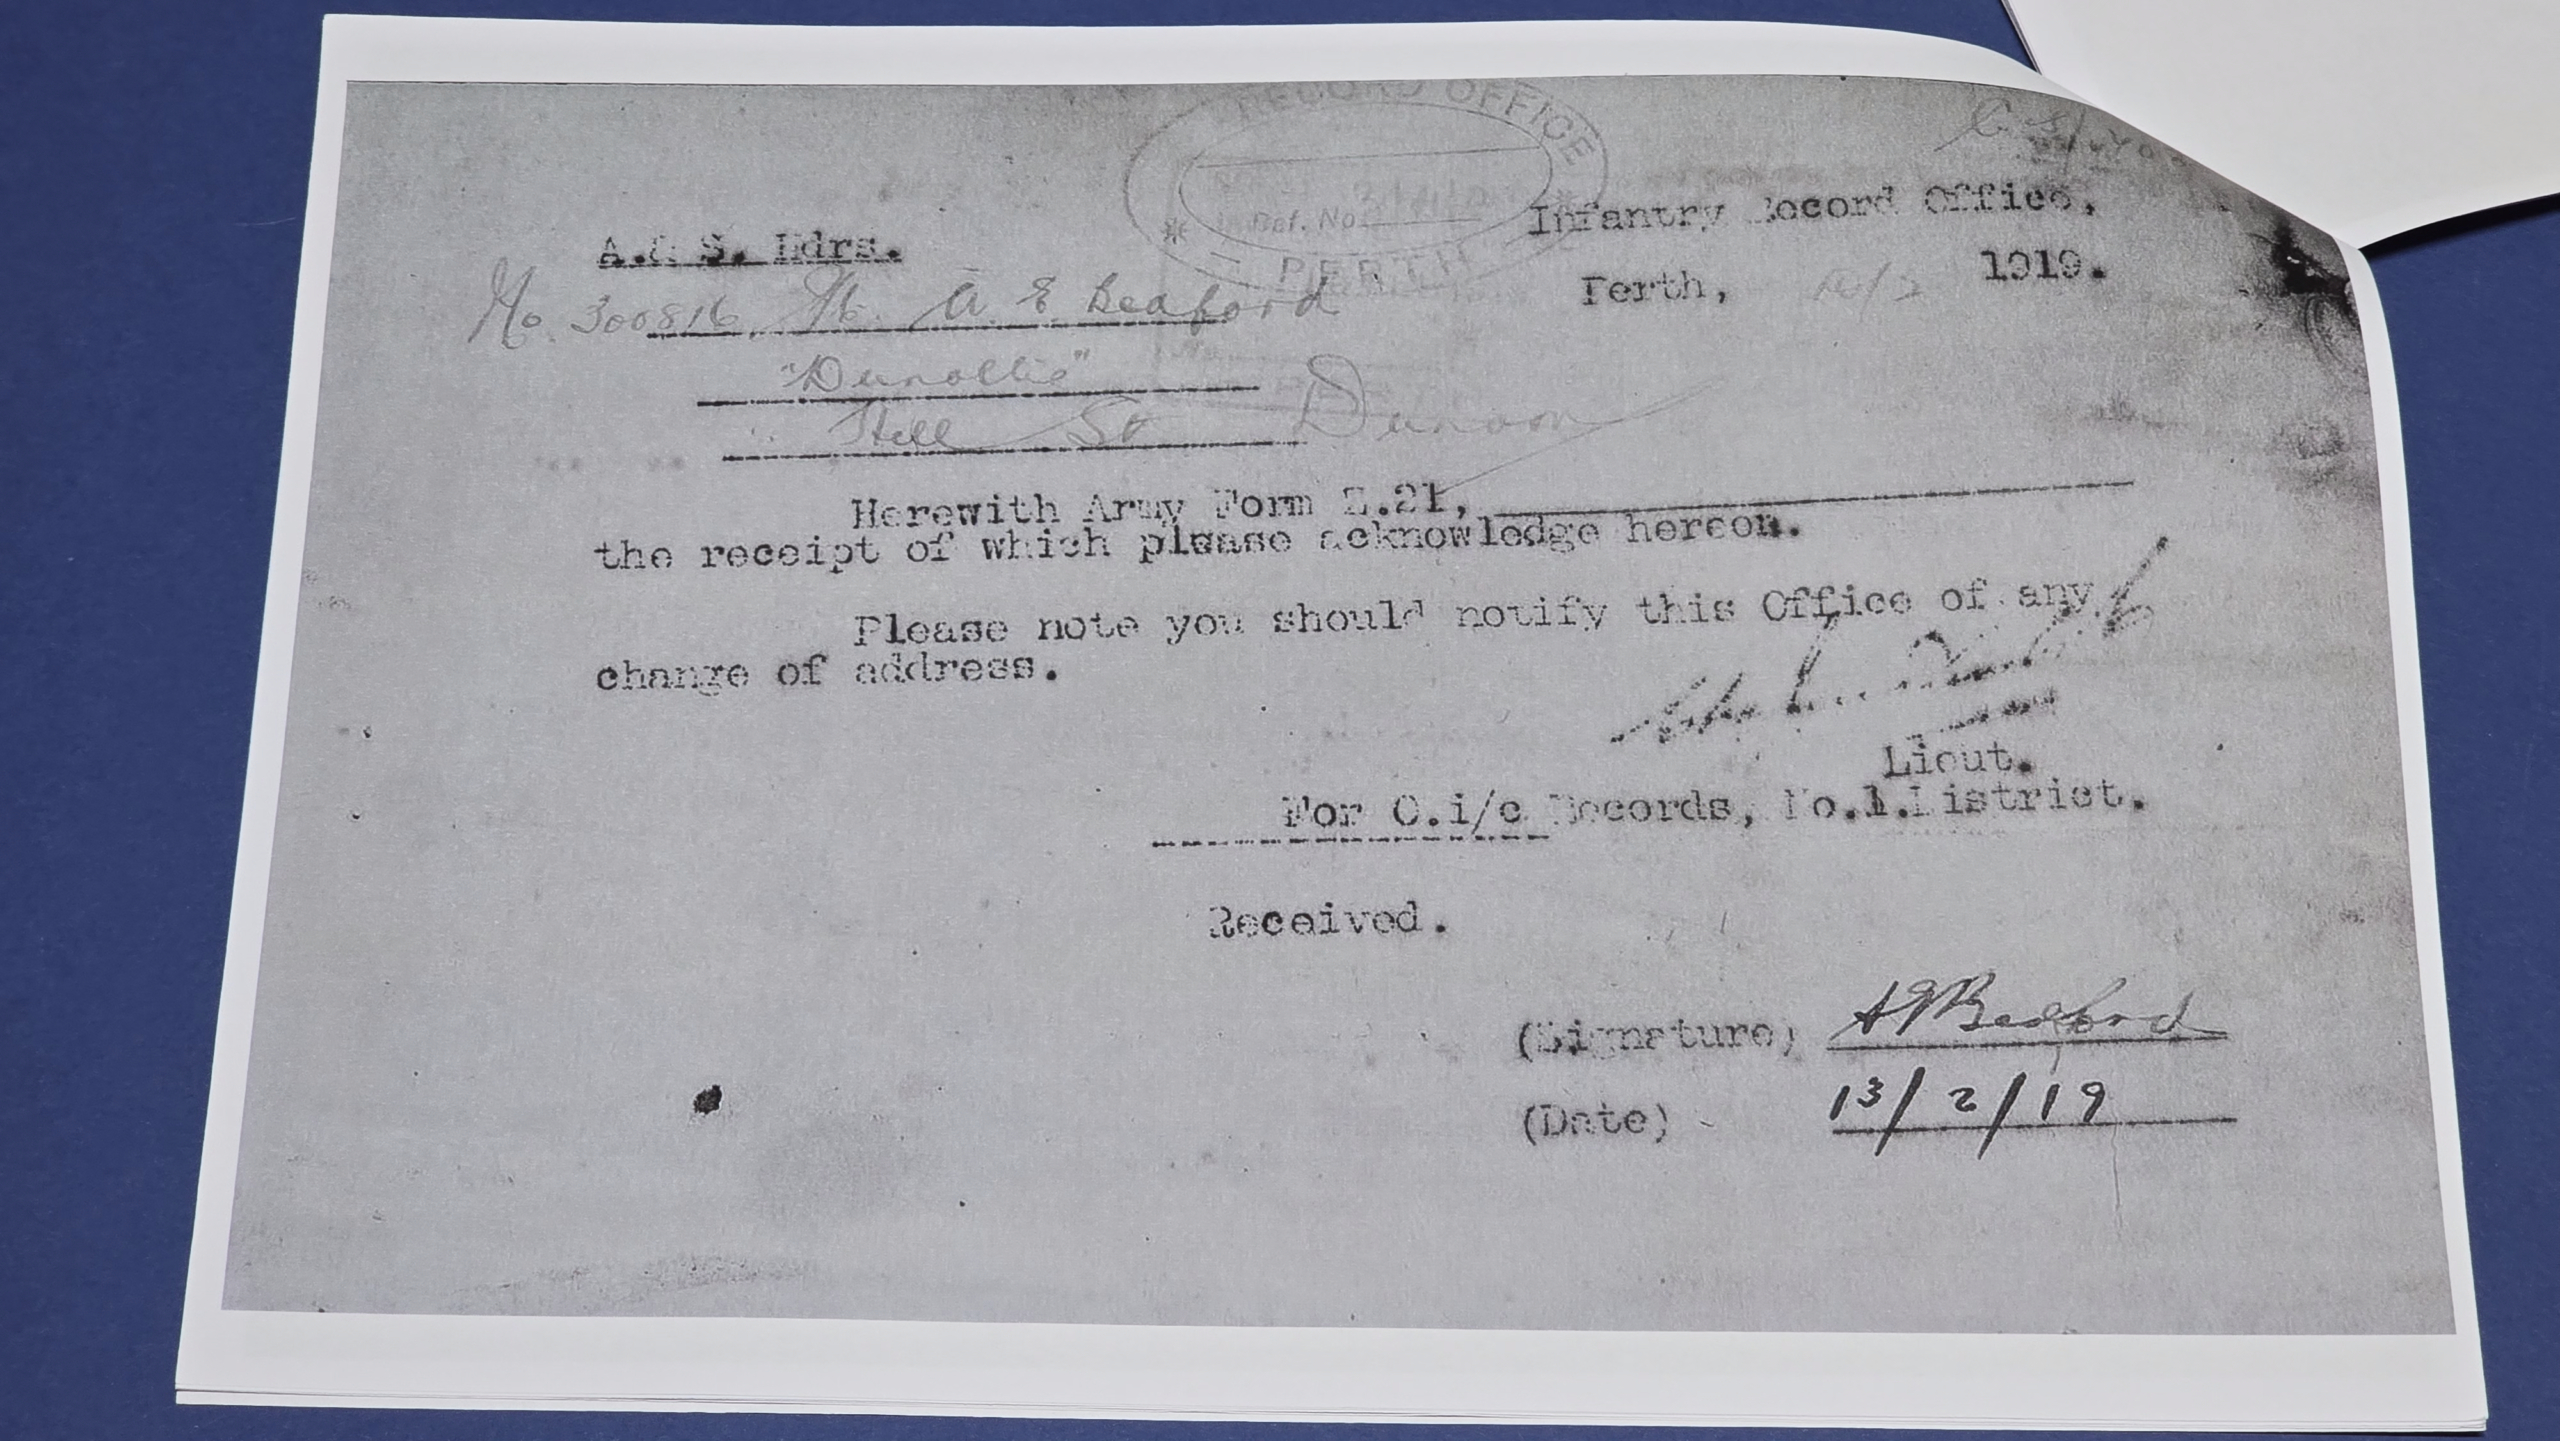 RECORD OFFICE
Ref. No.
PERTH
A.& S. Hdrs.
Infantry Record Office,
Perth, 1919.
No. 300816. A. E. Bedford
"Dunollie"
Hill St Dunoon
Herewith Army Form Z.21,
the receipt of which please acknowledge hereon.
Please note you should notify this Office of any
change of address.
Lieut.
For O.i/c Records, No.1.District.
Received.
(Signature) A E Bedford
(Date) 13/2/19